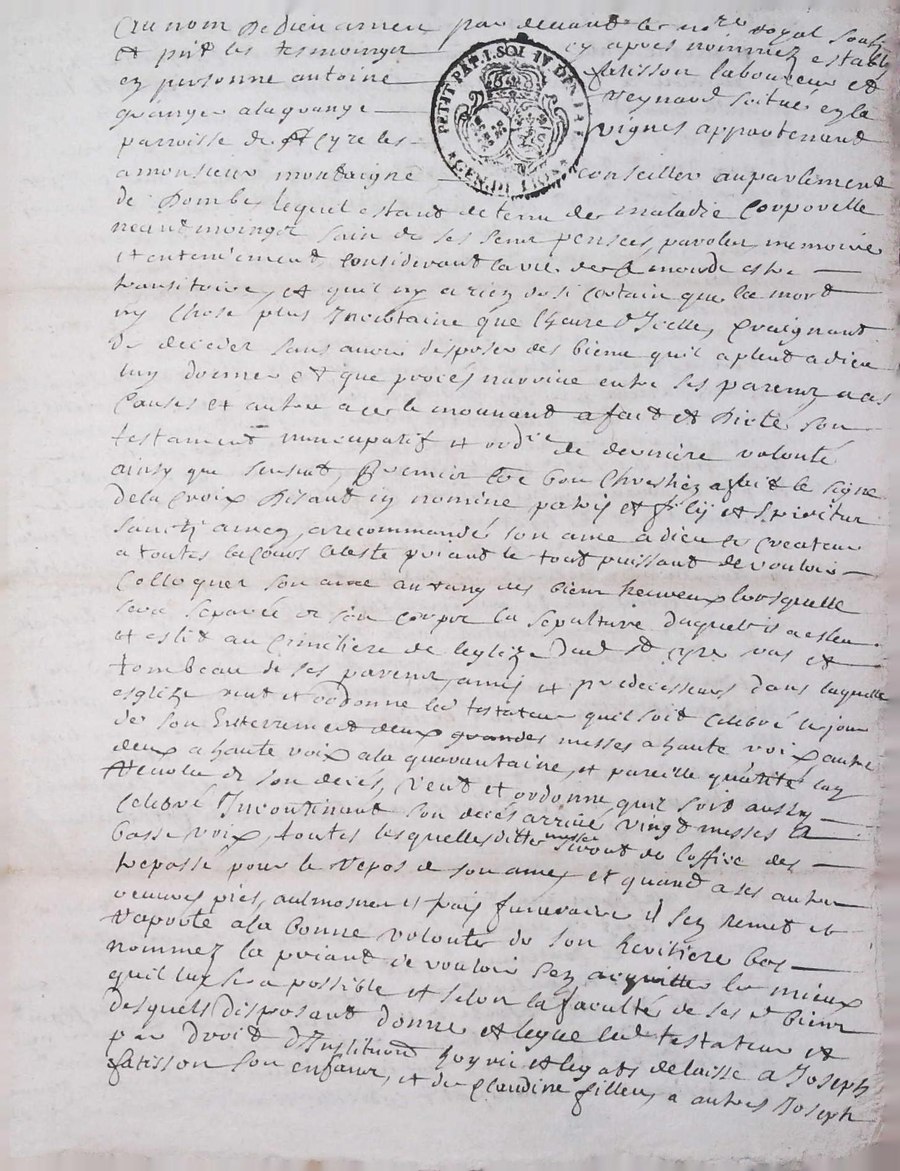 Au nom de dieu amen par devant le no.re royal soub.
et pnt les tesmoingz cy apres nommez estably
en personne antoine fatisson laboureur et
granger a la grange Reynard scitue en la
parroisse de St Cyre les vignes appartenand
PETIT PAP. 1. SOL IV DEN. LA F.
GEN. DE LION
a monsieur montaigne conseiller au parlement
de Dombe, lequel estand detenu de maladie corporelle
neantmoingz sain de ses sens pensées, paroles memoire
et entenement considerant la vie de ce monde estre
transitoire, et quil ny a rien de si certain que la mort
ny chose plus Incertaine que lheure d'Icelle, Craignant
de deceder sans avoir disposer des biens quil a pleut a dieu
luy donner et que procés narrive entre ses parens a cas
Causes et autre a ce le mouvand a fait et Dicté son
testament nuncupatif et ord.re de derniere volonté
ainsy que sensuit, Premier Co.e bon Chrestien a fait le signe
de la Croix Disant in nomine patris et filij et spiritus
sancti amen, a recommandé son ame a dieu le Createur
a toutes la Cours Celeste priant le tout puissant de vouloir
Colloquer son ame au rang des bien heureux lorsquelle
sera separée de son corps la sepulture duquel il a esleu
et eslit au Cimetiere de leglize dud. St Cyre vas et
tombeau de ses parens, amis et predecesseurs dans laquelle
esglize veut et ordonne led. testateur quil soit celebré le jour
de son Enterrement deux grandes messes a haute voix, autre
deux a haute voix a la quarantaine, et pareille quantité au
Revolu de son decés, Veut et ordonne quil soit aussy
Celebré Incontinant son decés arrivé vingt messes a
basse voix, toutes lesquelles dittes messes seront de loffice des
trepassé pour le Repos de son ame, et quand a ses autres
oeuvres pies, aulmosnes et frais funeraire il sen remet et
raporte a la bonne volonté de son heritiere bas
nommez la priant de vouloir sen acquitter le mieux
quil luy sera possible et selon la faculté de ses d. biens
desquels disposant donne et legue led. testateur et
par droit d'Institiond hoyrie et legats delaisse a Joseph
fatisson son enfant, et de Claudine filleu, a autres Joseph